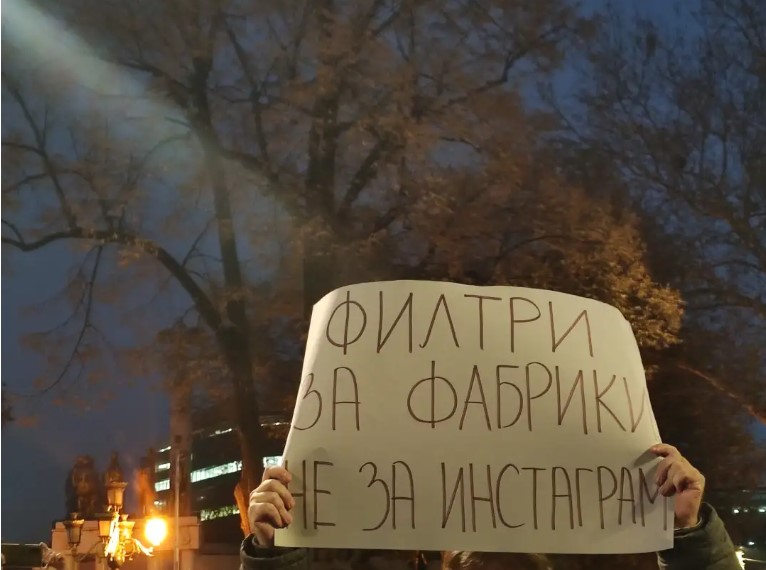 ФИЛТРИ
ЗА ФАБРИКИ
НЕ ЗА ИНСТАГРАМ